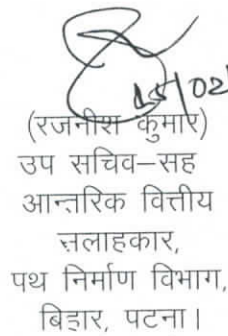 15/02
(रजनीश कुमार)
उप सचिव–सह
आन्तरिक वित्तीय
सलाहकार,
पथ निर्माण विभाग,
बिहार, पटना।